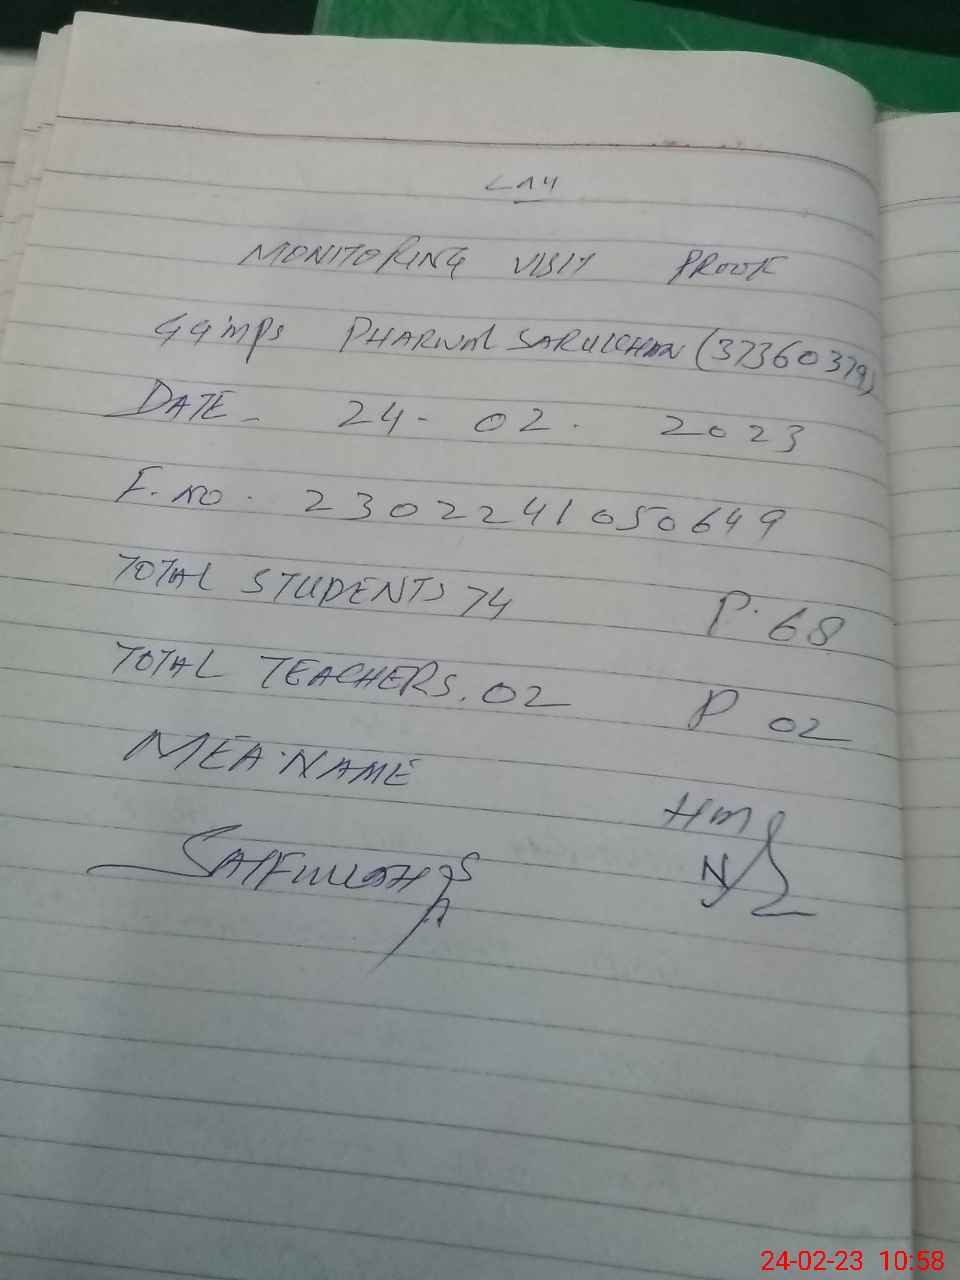 MONITORING VISIT PROOF
GGMPS PHARWAL SARULKHAN (37360379)
DATE - 24 - 02 . 2023
F. NO . 2302241050649
TOTAL STUDENTS 74 P. 68
TOTAL TEACHERS. 02 P 02
MEA. NAME
HM
SAIFULLAH
24-02-23 10:58